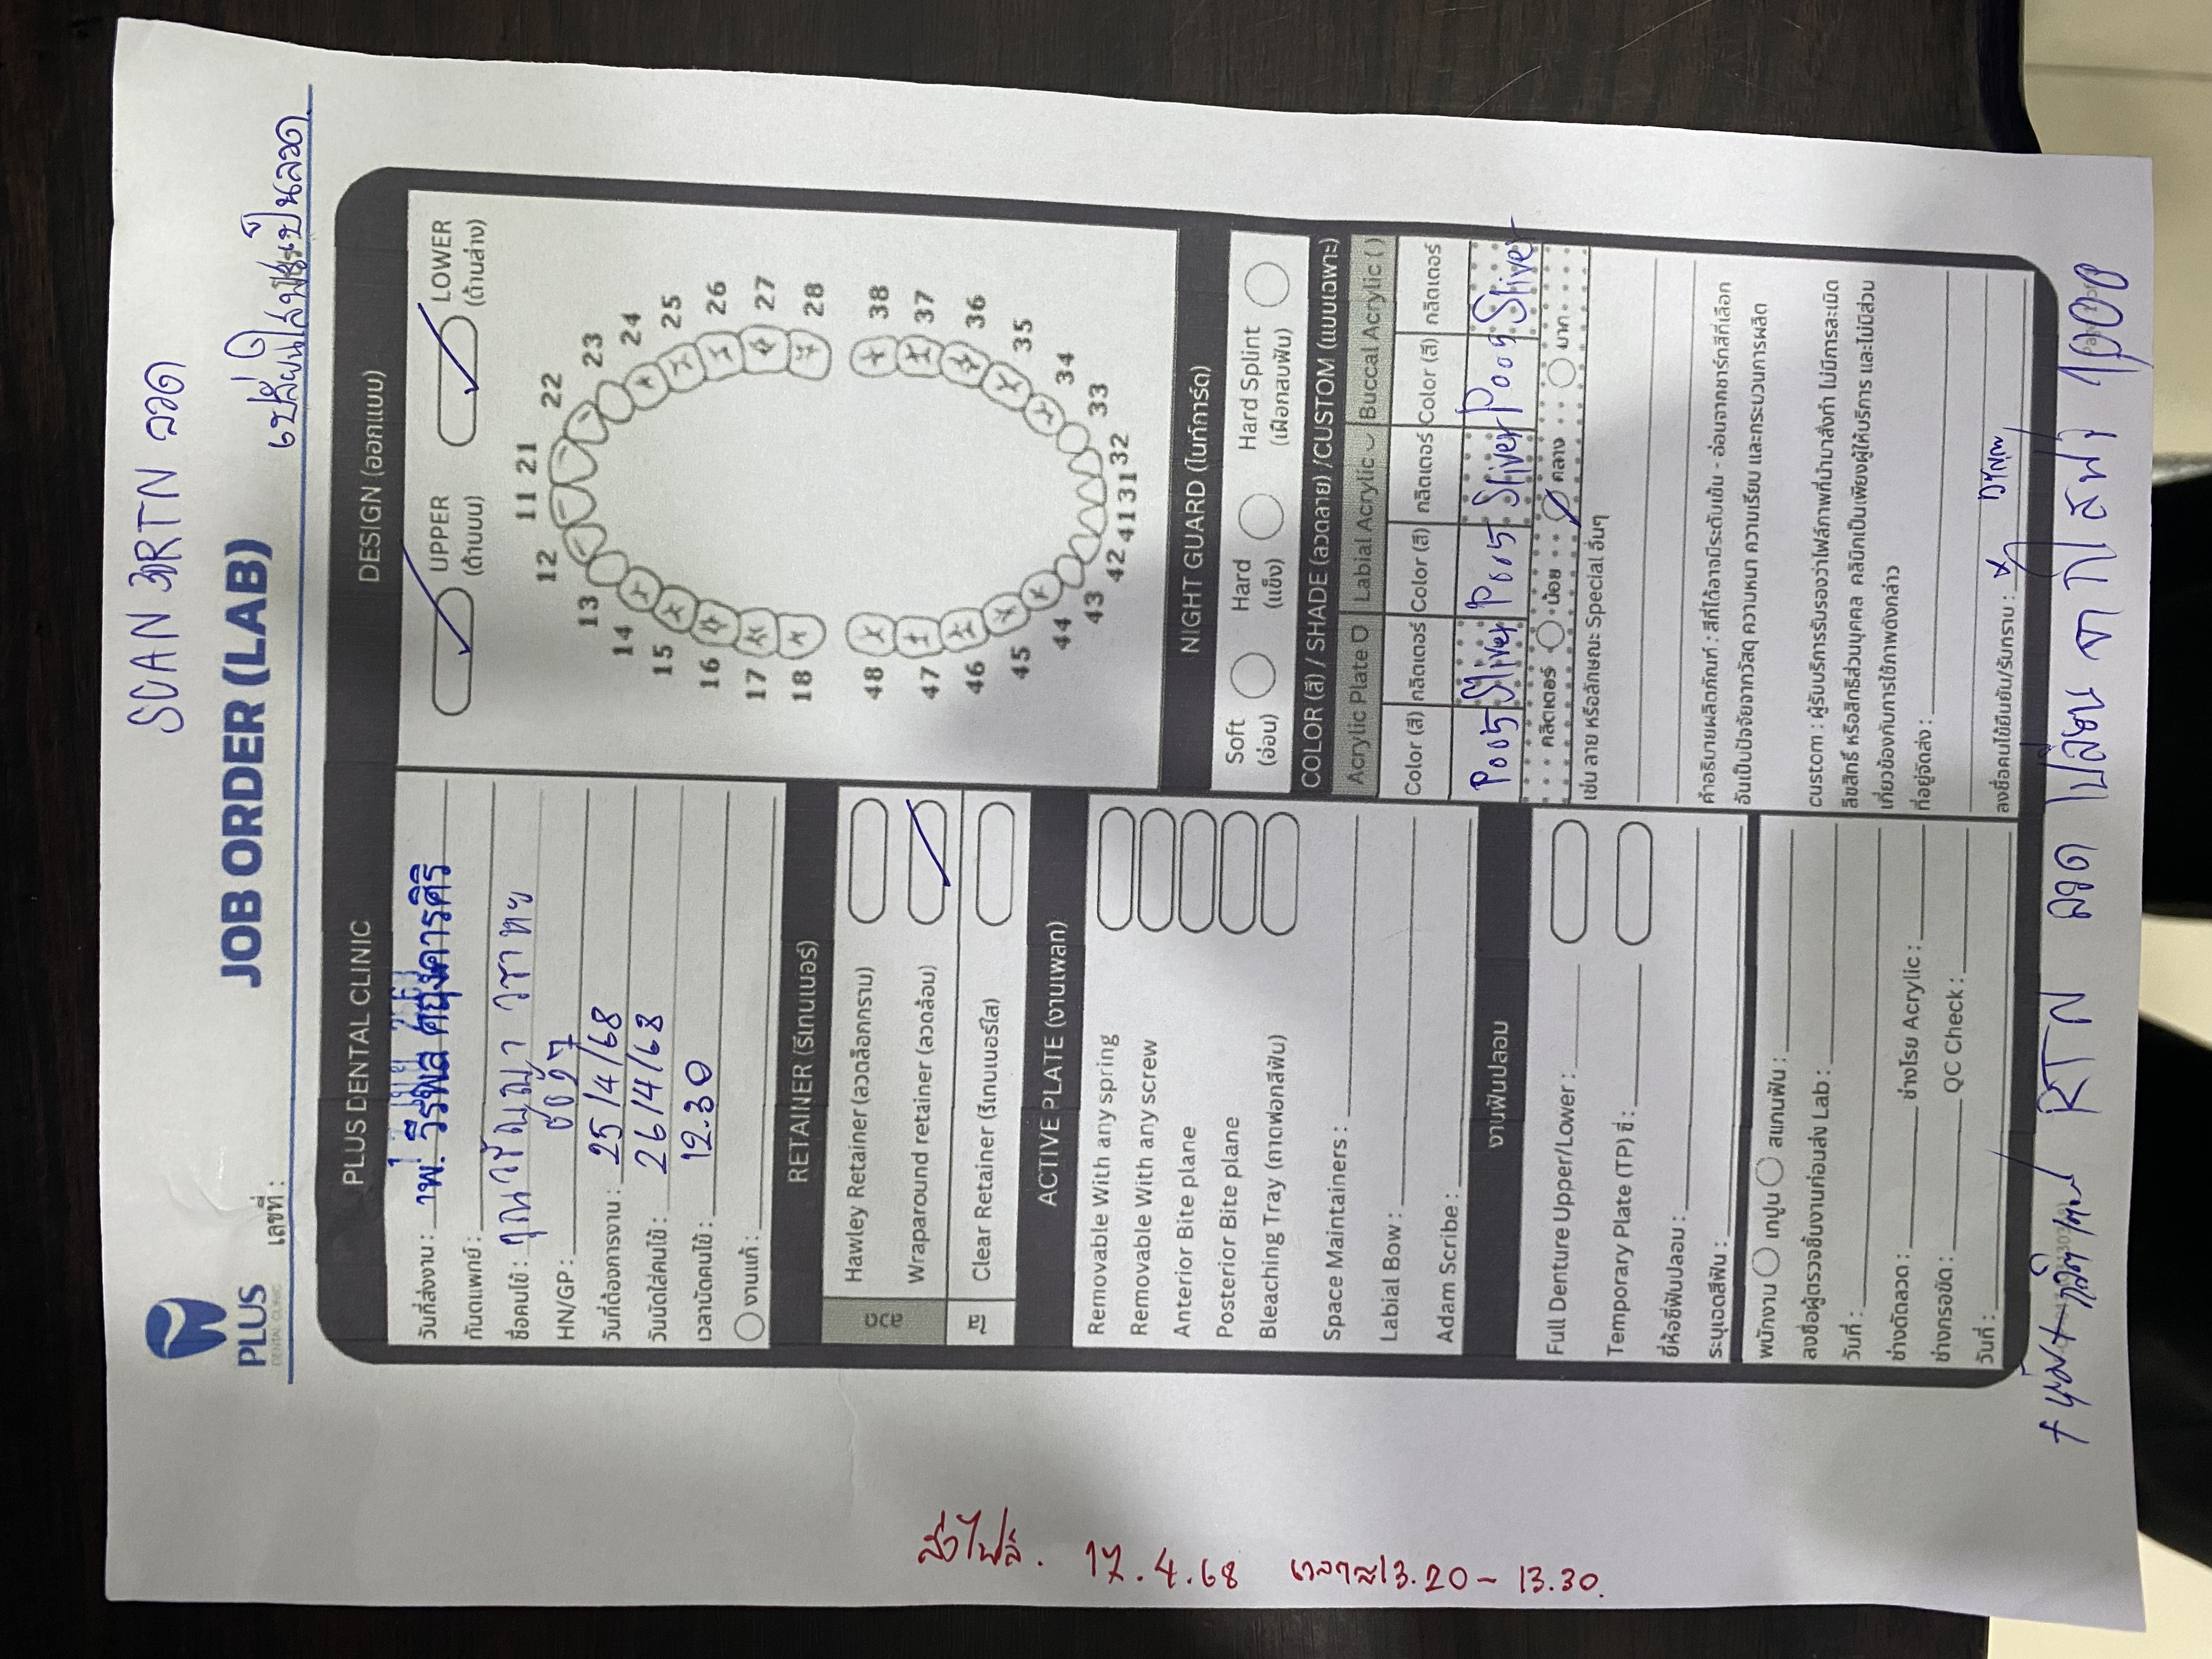 SCAN 3D RTN ลวด
PLUS
DENTAL CLINIC
เลขที่ :
JOB ORDER (LAB)
เปลี่ยนใสฟรีเป็นลวด
PLUS DENTAL CLINIC
วันที่ส่งงาน :
ทพ. วีรพล ศฤงคารศิริ
ทันตแพทย์ :
ชื่อคนไข้ : คุณวรัญญา
HN/GP : 0027
วันที่ต้องการงาน : 25/4/68
วันนัดใส่คนไข้ : 26/4/68
เวลานัดคนไข้ : 12.30
งานแก้ :
RETAINER (รีเทนเนอร์)
ลวด
Hawley Retainer (ลวดล็อกกราม)
Wraparound retainer (ลวดล้อม)
ใส
Clear Retainer (รีเทนเนอร์ใส)
ACTIVE PLATE (งานเพลท)
Removable With any spring
Removable With any screw
Anterior Bite plane
Posterior Bite plane
Bleaching Tray (ถาดฟอกสีฟัน)
Space Maintainers :
Labial Bow :
Adam Scribe :
งานฟันปลอม
Full Denture Upper/Lower :
Temporary Plate (TP) ซี่ :
ยี่ห้อซี่ฟันปลอม :
ระบุเฉดสีฟัน :
พนักงาน เทปูน สแกนฟัน :
ลงชื่อผู้ตรวจชิ้นงานก่อนส่ง Lab :
วันที่ :
ช่างดัดลวด : ช่างโรย Acrylic :
ช่างกรอขัด : QC Check :
วันที่ :
DESIGN (ออกแบบ)
UPPER LOWER
(ด้านบน) (ด้านล่าง)
11 21
12 22
13 23
14 24
15 25
16 26
17 27
18 28
48 38
47 37
46 36
45 35
44 34
43 33
42 41 31 32
NIGHT GUARD (ไนท์การ์ด)
Soft Hard Hard Splint
(อ่อน) (แข็ง) (เฝือกสบฟัน)
COLOR (สี) / SHADE (ลวดลาย) /CUSTOM (แบบเฉพาะ)
Acrylic Plate Labial Acrylic Buccal Acrylic ( )
Color (สี) กลิตเตอร์ Color (สี) กลิตเตอร์ Color (สี) กลิตเตอร์
P005 Sliver P005 Sliver P005 Sliver
กลิตเตอร์ น้อย กลาง มาก
เช่น ลาย หรือลักษณะ Special อื่นๆ
คำอธิบายผลิตภัณฑ์ : สีที่ได้อาจมีระดับเข้ม - อ่อนจากชาร์ทสีที่เลือก
อันเป็นปัจจัยจากวัสดุ ความหนา ความเรียบ และกระบวนการผลิต
custom : ผู้รับบริการรับรองว่าไฟล์ภาพที่นำมาสั่งทำ ไม่มีการละเมิด
ลิขสิทธิ์ หรือสิทธิส่วนบุคคล คลินิกเป็นเพียงผู้ให้บริการ และไม่มีส่วน
เกี่ยวข้องกับการใช้ภาพดังกล่าว
ที่อยู่จัดส่ง :
ลงชื่อคนไข้ยืนยัน/รับทราบ : x
กลิตเตอร์ RTN ลวด เปลี่ยน จากใสฟรี 1,000
ส่งไฟล์. 17.4.68 เวลา 13.20 - 13.30.